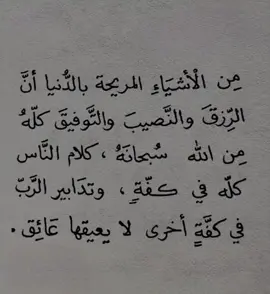 مِن الْأشيَاءِ المريحة بالدُّنيا أنَّ
الرِّزقَ والنَّصيبَ والتَّوفيقَ كلّهُ
مِن الله سُبحانَهُ ، كلام النَّاس
كلّه في كفّةٍ ، وتدَابير الرَّبّ
في كفَّةٍ أخرى لا يعيقها عَائِق .